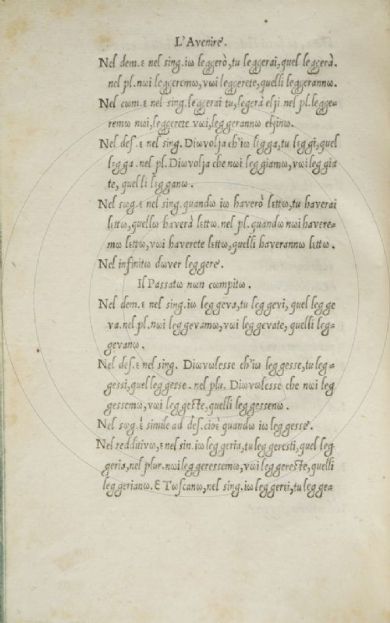 L'Avenire.
Nel dem. ε nel sing. iω leggerò, tu leggerai, quel leggerà.
nel pl. nωi leggeremω, vωi leggerete, quelli legerannω.
Nel cωm. ε nel sing. leggerai tu, legerà eʃʃi. nel pl. legge-
remω nωi, leggerete vωi, leggerannω eʃʃinω.
Nel deʃ. ε nel sing. Diωvωlja ch'iω lεgga, tu lεggi, quel
lεgga. nel pl. Diωvωlja che nωi leggiamω, vωi leggia
te, quelli lεgganω.
Nel sωg. ε nel sing. quandω iω haverò lεttω, tu haverai
lεttω, quellω haverà lεttω. nel pl. quandω nωi havere-
mω lεttω, vωi haverete lεttω, quelli haverannω lεttω.
Nel infinitω dωver leggere.
Il Passatω nωn cωmpitω.
Nel dem. ε nel sing. iω leggeva, tu leggevi, quel legge
va. nel pl. nωi leggevamω, vωi legevate, quelli leg-
gevanω.
Nel deʃ. ε nel sing. Diωvωlesse ch'iω leggesse, tu leg-
gessi, quel leggesse. nel plu. Diωvωlesse che nωi leg
gessemω, vωi leggeste, quelli leggessenω.
Nel sωg. ε simile al deʃ. ciὼε quandω iω leggesse.
Nel redduivω, ε nel sin. iω leggeria, tu leggeresti, quel leg
geria, nel plur. nωi leggeressemω, vωi leggereste, quelli
leggerianω. E Tωscanω, nel sing. iω leggerei, tu legge-